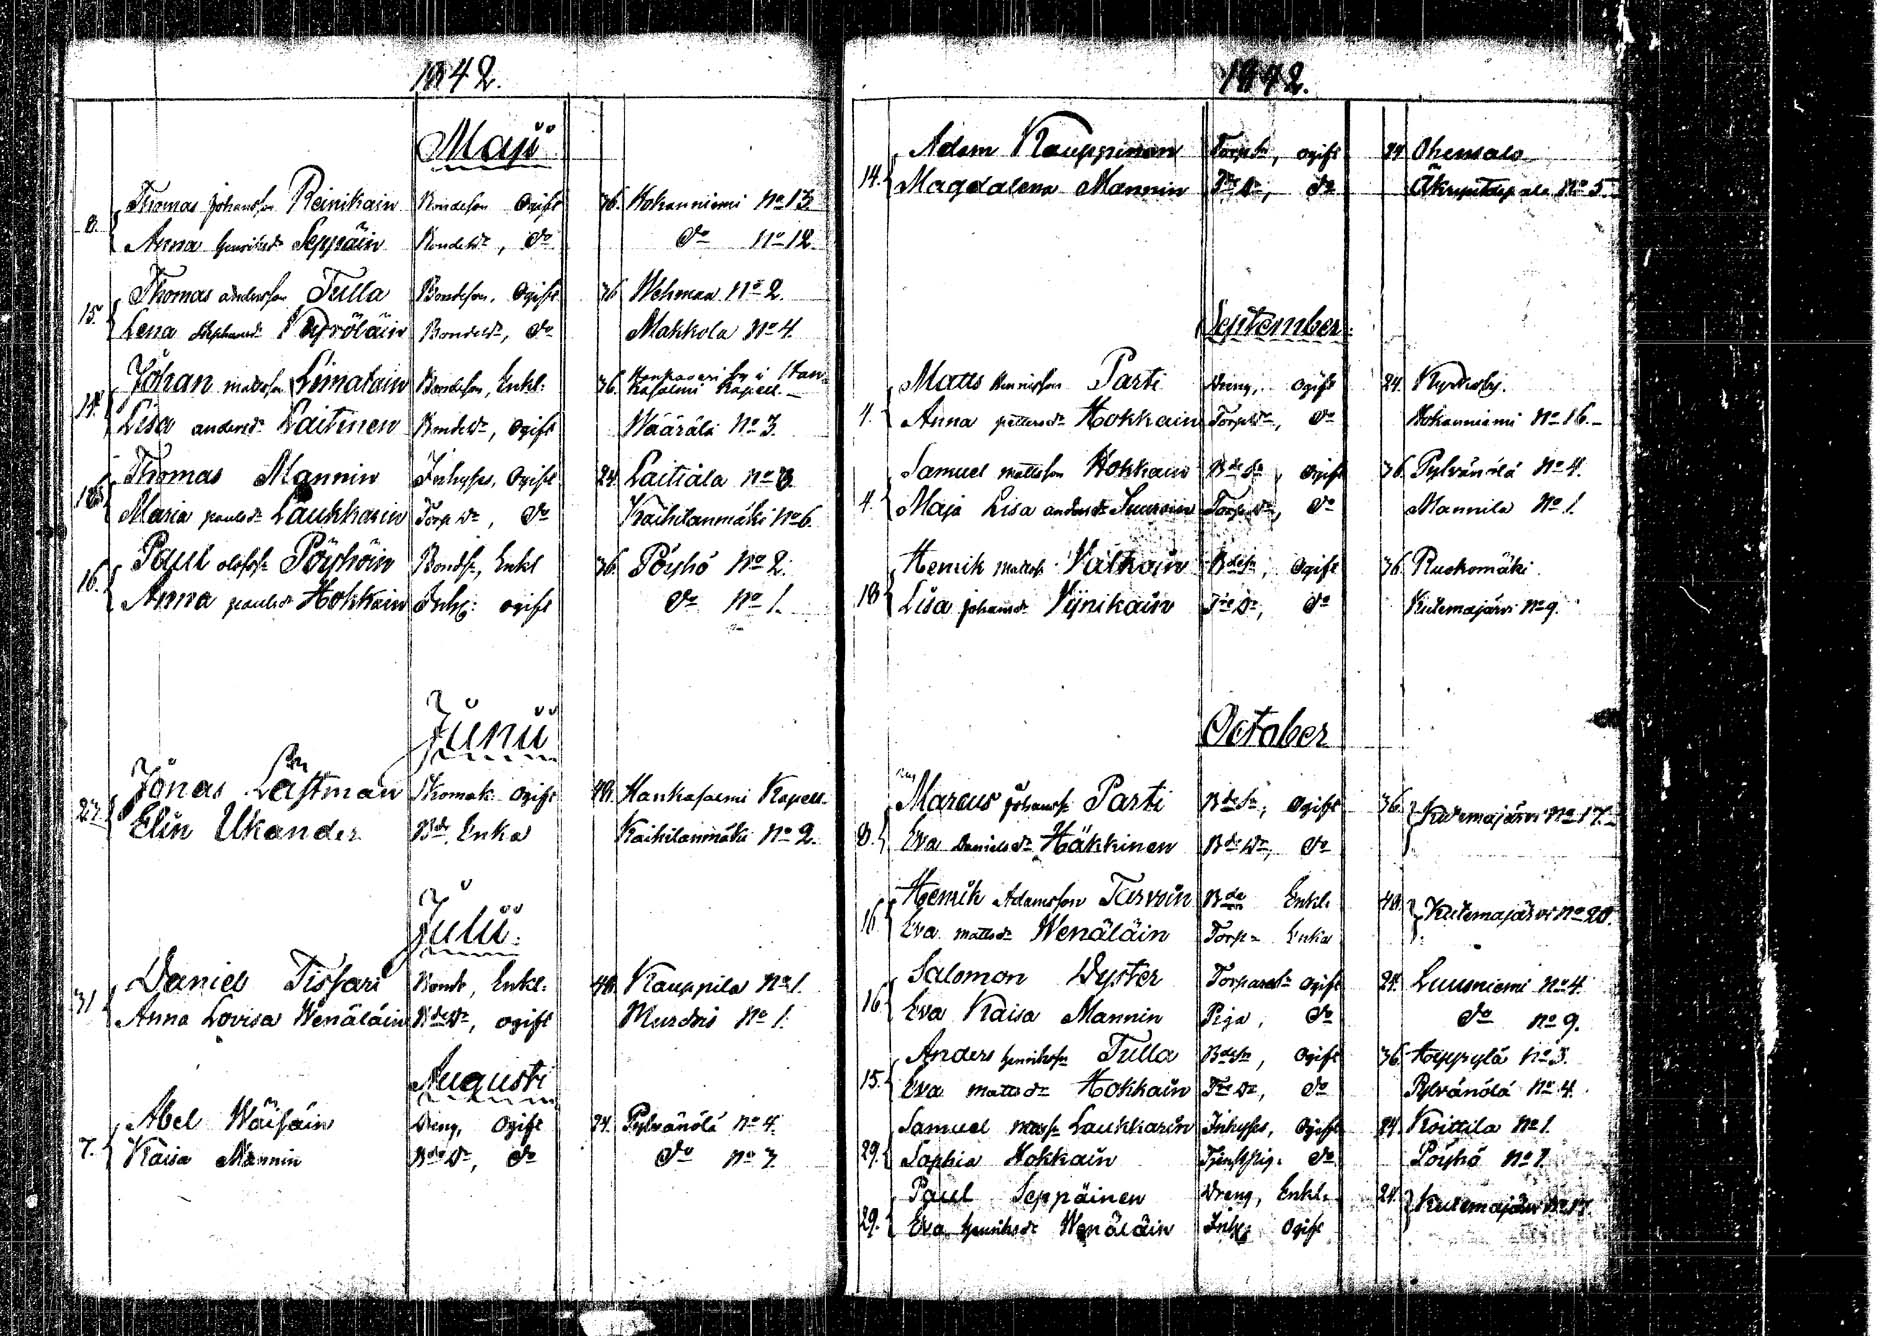 1842.
Maji
8. Thomas Johansson Reinikain Bondeson Ogift 36. Kohanniemi No 13.
Anna Henriksdr Seppäin Bondedr, do do No 12.
15. Thomas Andersson Tulla Bondeson, Ogift 36 Wehmaa No 2.
Lena Stephansdr Bondedr, do Makkola No 4.
Johan Mattsson Limatain Bondeson, Enkl: 36. by i Hankasalmi Kapell.
Lisa Andersdr Laitinen Bondedr, ogift Wäärälä No 3.
Thomas Mannin Inhyses, Ogift 24. Laitiala No 8.
Maria Paulsdr Laukkarin Torp dr, do Kaihilanmäki No 6.
16. Paul Olofss Pöyhöin Bondes, Enkl 36. Pöyhö No 2.
Anna Paulsdr Hokkain Inhs: ogift do No 1.
Junii
27. Jonas Lästman Skomak. Ogift Hankasalmi Kapell.
Elin Ukander Bde. Enka Kaihilanmäki No 2.
Julii.
31 Daniel Tissari Bonde, Enkl. 48. Kauppila No 1.
Anna Lovisa Wenäläin Bdedr, ogift No 1.
Augusti
7. Abel Wäisäin Dreng, Ogift 24. Pylvänälä No 4.
Kaisa Mannin Bdedr, do do No 7.
1842.
14. Adam Kauppinen Torpson, ogift 24 Ohensalo
Magdalena Mannin dr, do No 5.
September.
4. Matts Hennisson Parti Dreng, ogift 24. Kyrkoby.
Anna Pettersdr Hokkain Torpdr, do Kohanniemi No 16.
4. Samuel Mattsson Hokkain Bdeson, ogift 36. Pylvänälä No 4.
Maja Lisa Andersdr Torpdr, do Mannila No 1.
18 Henrik Mattss Valkoin Bdeson, ogift 36. Ruokomäki.
Lisa Johansdr Vijnikain dr, do Kutemajärvi No 9.
October
8. Marcus Johanss Parti Bdeson, Ogift 36. Kutemajärvi No 17.
Eva Danielsdr Häkkinen Bdedr, do
16 Henrik Adamsson Tarvain Bde Enkl. 48. Kutemajärvi No 20.
Eva Mattsdr Wenäläin Torp- Enka
16 Salomon Dyster Torpareson ogift 24. Luusniemi No 4.
Eva Kaisa Mannin Piga, do do No 9.
15. Anders Henrikss Tulla Bdeson, ogift 36. Hyyrylä No 3.
Eva Mattsdr Hokkain dr, do Pylvänälä No 4.
29. Samuel Laukkarin Inhyses, Ogift 24 Koittila No 1.
Sophia Hokkain do Pöyhö No 1.
29. Paul Seppäinen Dreng, Enkl. 24. Kutemajärvi No 17.
Eva Henriksdr Wenäläin Inhs: Ogift